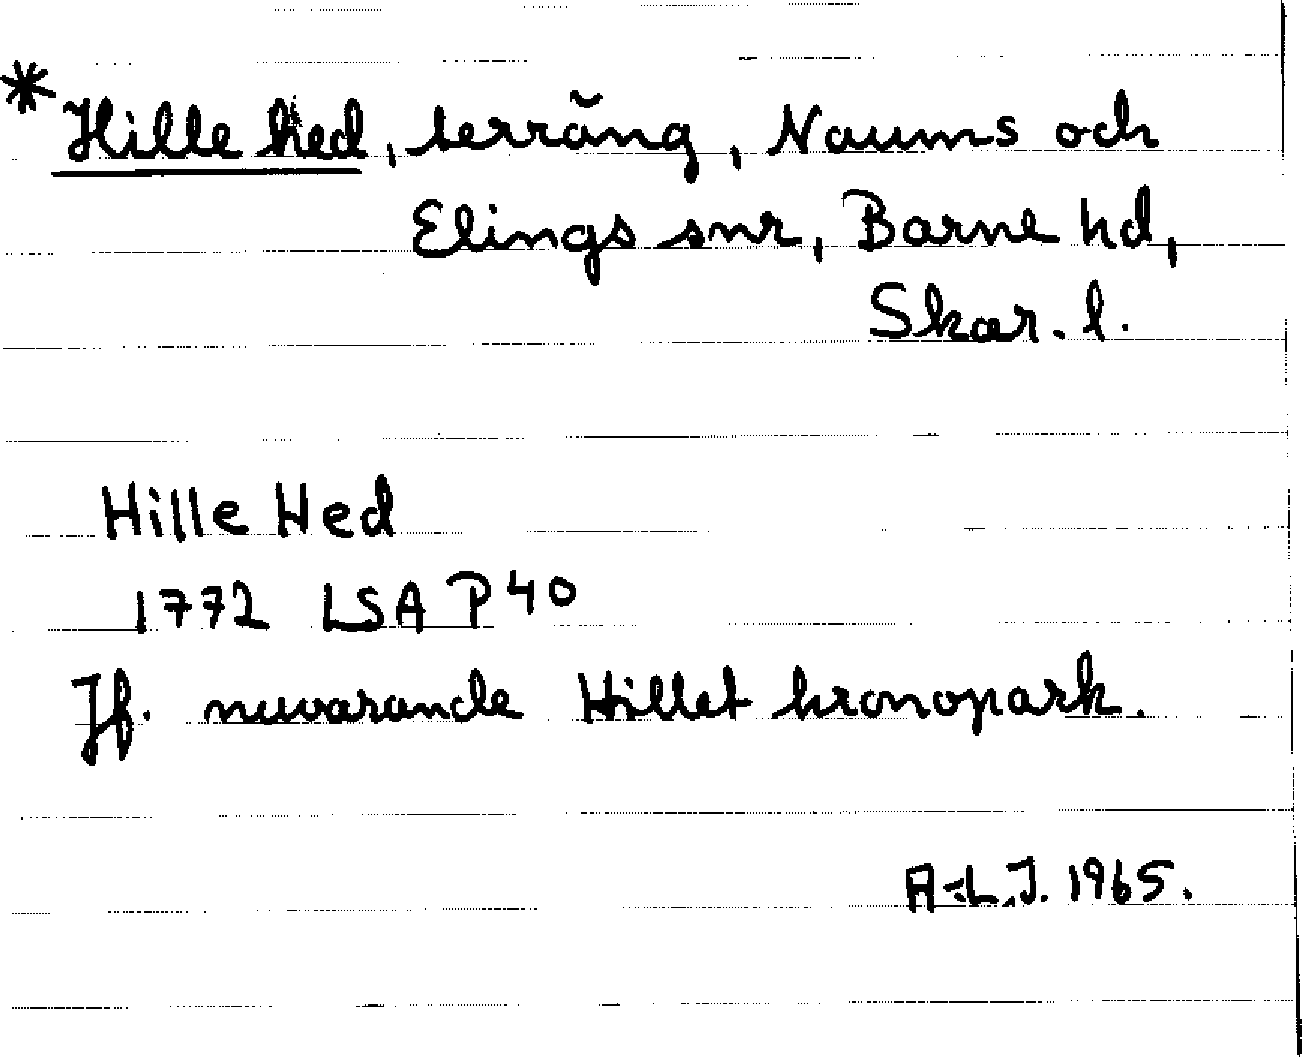 *Hille hed, terräng, Naums och
Elings snr, Barne hd,
Skar. l.
Hille Hed
1772 LSA P 40
Jf. nuvarande Hillet kronopark.
A-L.J. 1965.